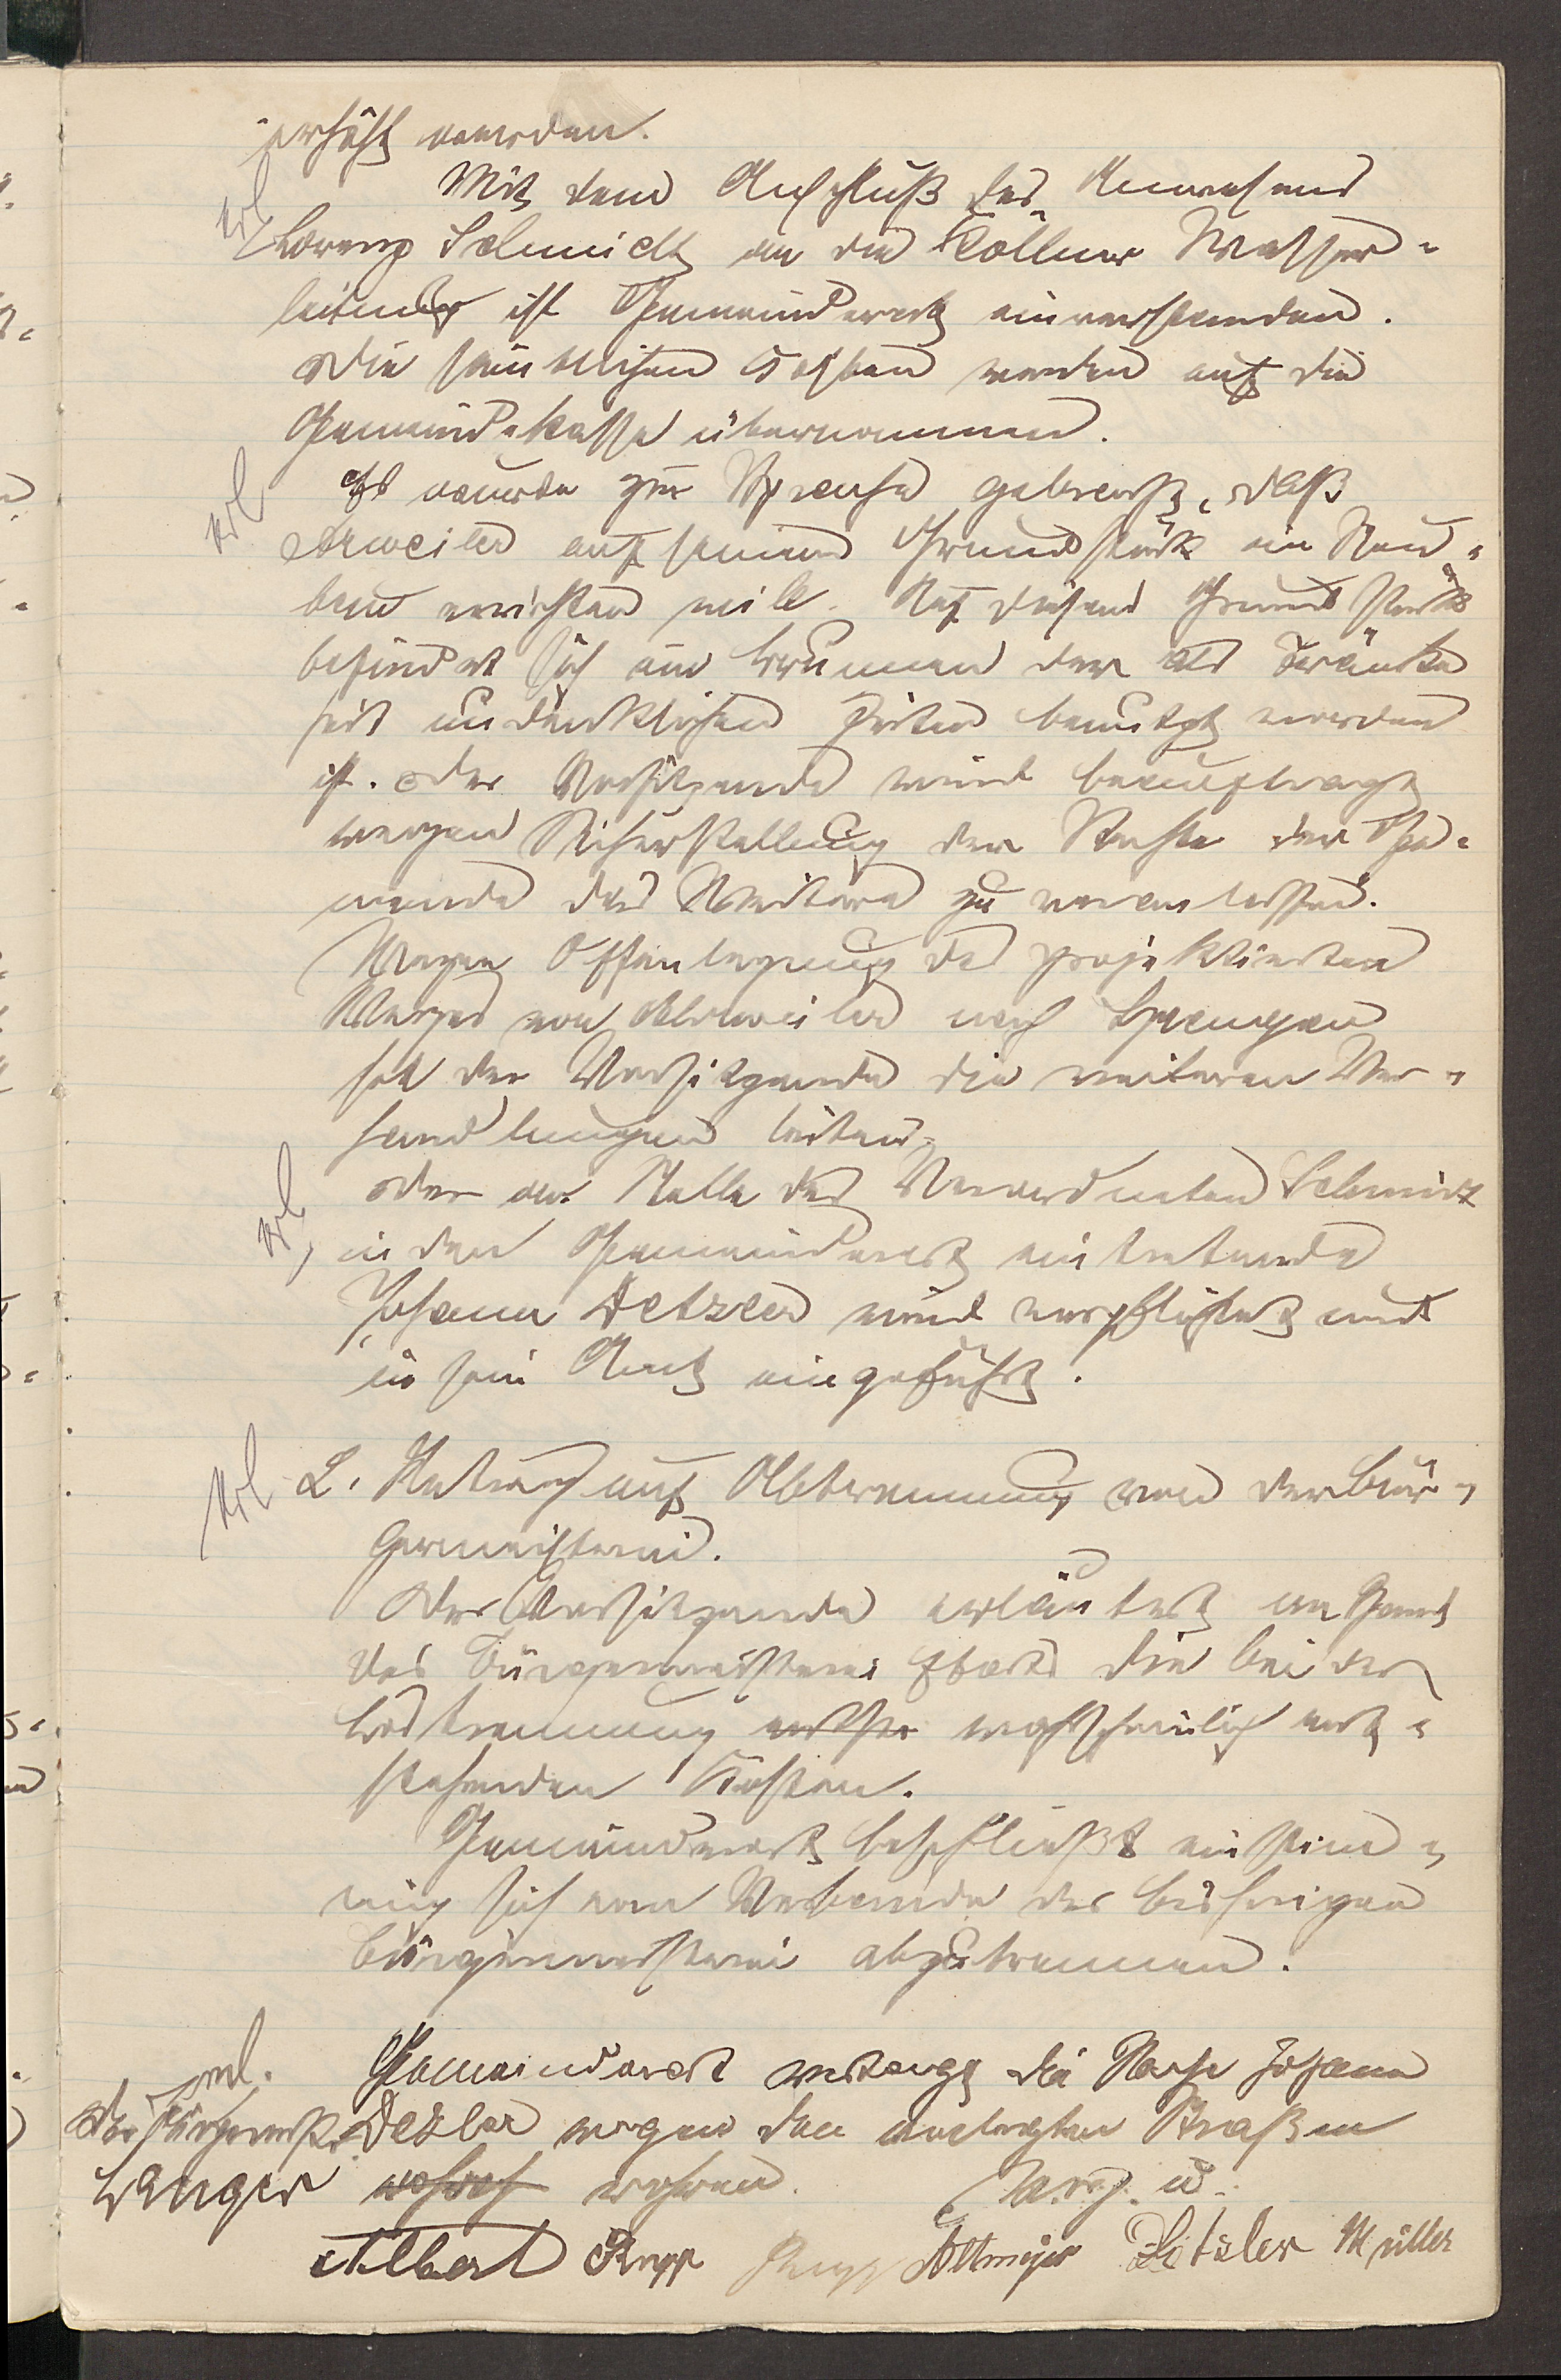 erhöht werden.
erl
Mit dem Anschluß des Anwesens
Lorenz Schmidt an die Köllner Wasser=
leitung ist Gemeinderat einverstanden.
Die sämtlichen Kosten werden auf die
Gemeindekasse übernommen.
erl
Es wurde zur Sprache gebracht, daß
Arweiler auf seinem Grundstück ein Neu=
bau errichten will. Auf diesem Grundstück
befindet sich ein Brunnen der als Tränke
seit undenklichen Zeiten benutzt worden
ist. Der Vorsitzende wird beauftragt
wegen Sicherstellung der Rechte der Ge=
meinde das Weitere zu veranlassen.
Wegen Offenlegung des projektierten
Weges von nach Sprengen
hat der Vorsitzende die weiteren Ver=
handlungen leiten.
erl
Der an Stelle des Verordneten Schmidt
in den Gemeinderat eintretende
Johann Detzler wird verpflichtet und
in sein Amt eingeführt.
erl
2. Antrag auf Abtrennung von der Bür=
germeisterei.
Der Vorsitzende erläutert an Hand
des Bürgermeisterei Etats die bei der
Lostrennung wahrscheinlich ent=
stehenden Kosten.
Gemeinderat beschließt einstim=
mig sich vom Verbande der bisherigen
Bürgermeisterei abzutrennen.
erl.
Gemeinderat vertagt die Sache Johann
Detzler wegen den verlegten Straßen
rohren.
v. g. u.
Der Bürgermstr.
Langer
Albert Rupp Rupp Altmeyer Detzler Müller